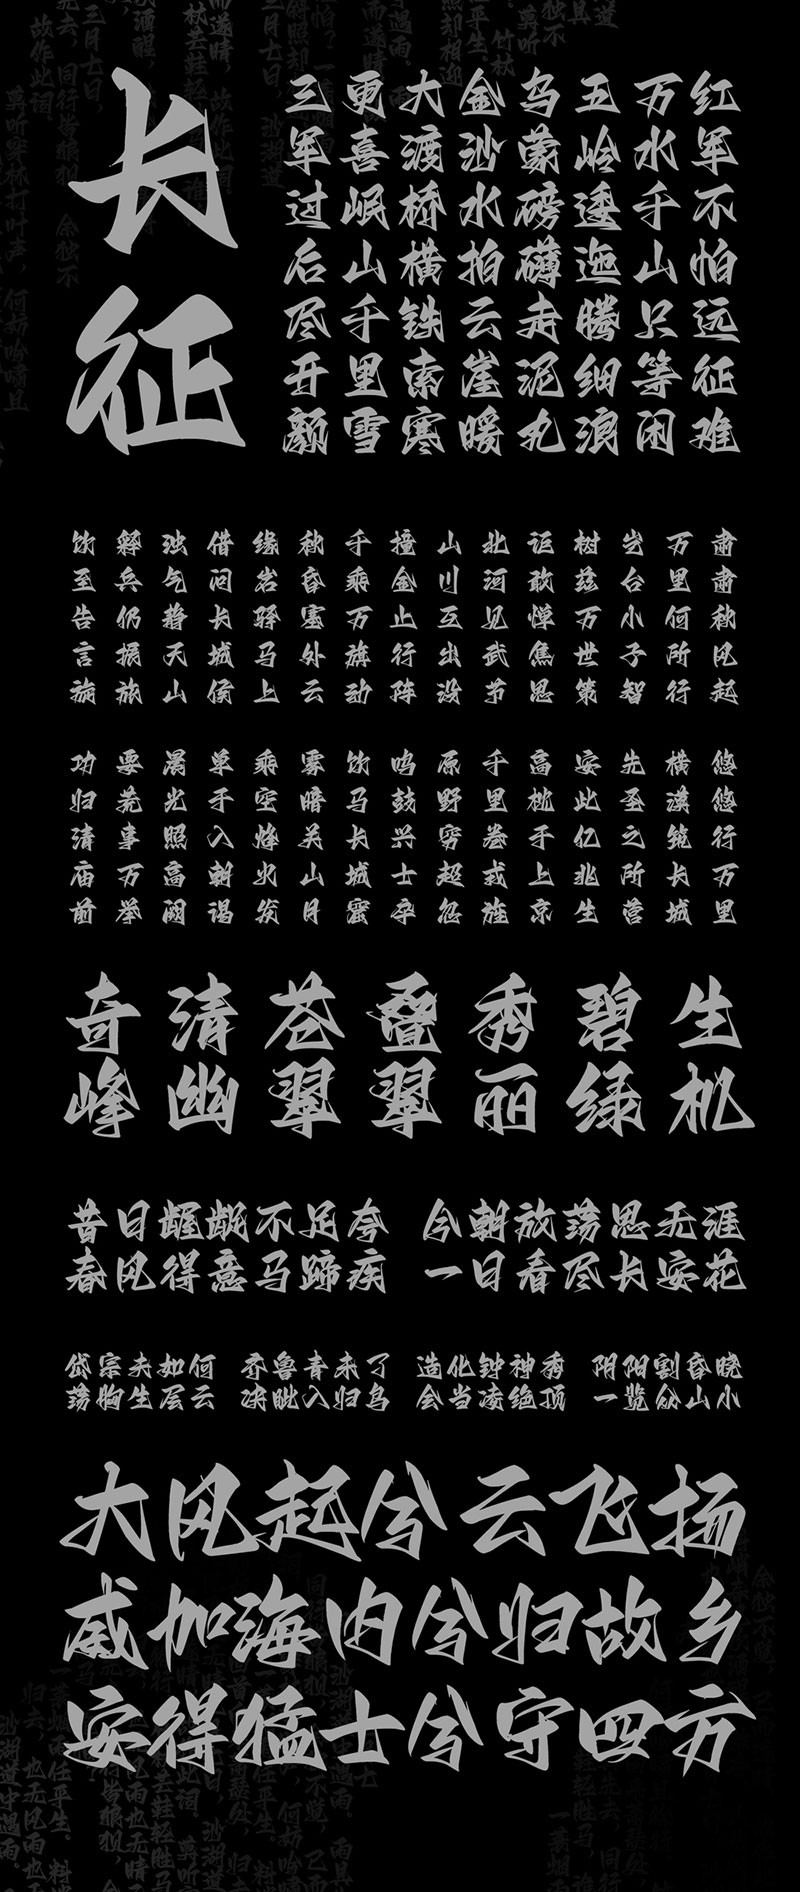 长征
红军不怕远征难
万水千山只等闲
五岭逶迤腾细浪
乌蒙磅礴走泥丸
金沙水拍云崖暖
大渡桥横铁索寒
更喜岷山千里雪
三军过后尽开颜
肃肃秋风起
万里何所行
岂台小子智
树兹万世策
讵敢惮焦思
北河见武节
山川互出没
撞金止行阵
千乘万旗动
秋昏塞外云
缘岩驿马上
借问长城侯
浊气静天山
释兵仍振旅
饮至告言旋
悠悠行万里
横漠筑长城
先圣之所营
安此亿兆生
高枕于上京
千里卷戎旌
原野穷超忽
鸣鼓兴士卒
饮马长城窟
雾暗关山月
乘空烽火发
单于入朝谒
晨光照高阙
要荒事万举
功归清庙前
奇峰
清幽
苍翠
叠翠
秀丽
碧绿
生机
昔日龌龊不足夸 今朝放荡思无涯
春风得意马蹄疾 一日看尽长安花
岱宗夫如何 齐鲁青未了 造化钟神秀 阴阳割昏晓
荡胸生层云 决眦入归鸟 会当凌绝顶 一览众山小
大风起兮云飞扬
威加海内兮归故乡
安得猛士兮守四方